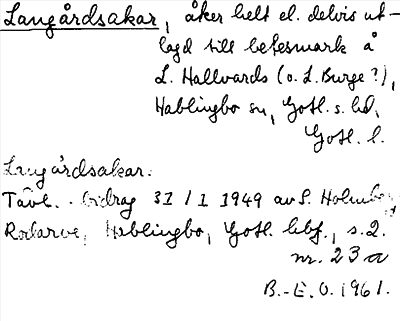 Langårdsakar, åker helt el. delvis ut-
lagd till betesmark å
L. Hallvards (o. L. Burge?),
Hablingbo sn, Gotl. s. hd,
Gotl. l.
Langårdsakar.
Tävl. bidrag 31/1 1949 av S. Holmberg
Rodarve, Hablingbo, Gotl. lbf., s. 2.
nr. 23 a
B.-E. O. 1961.